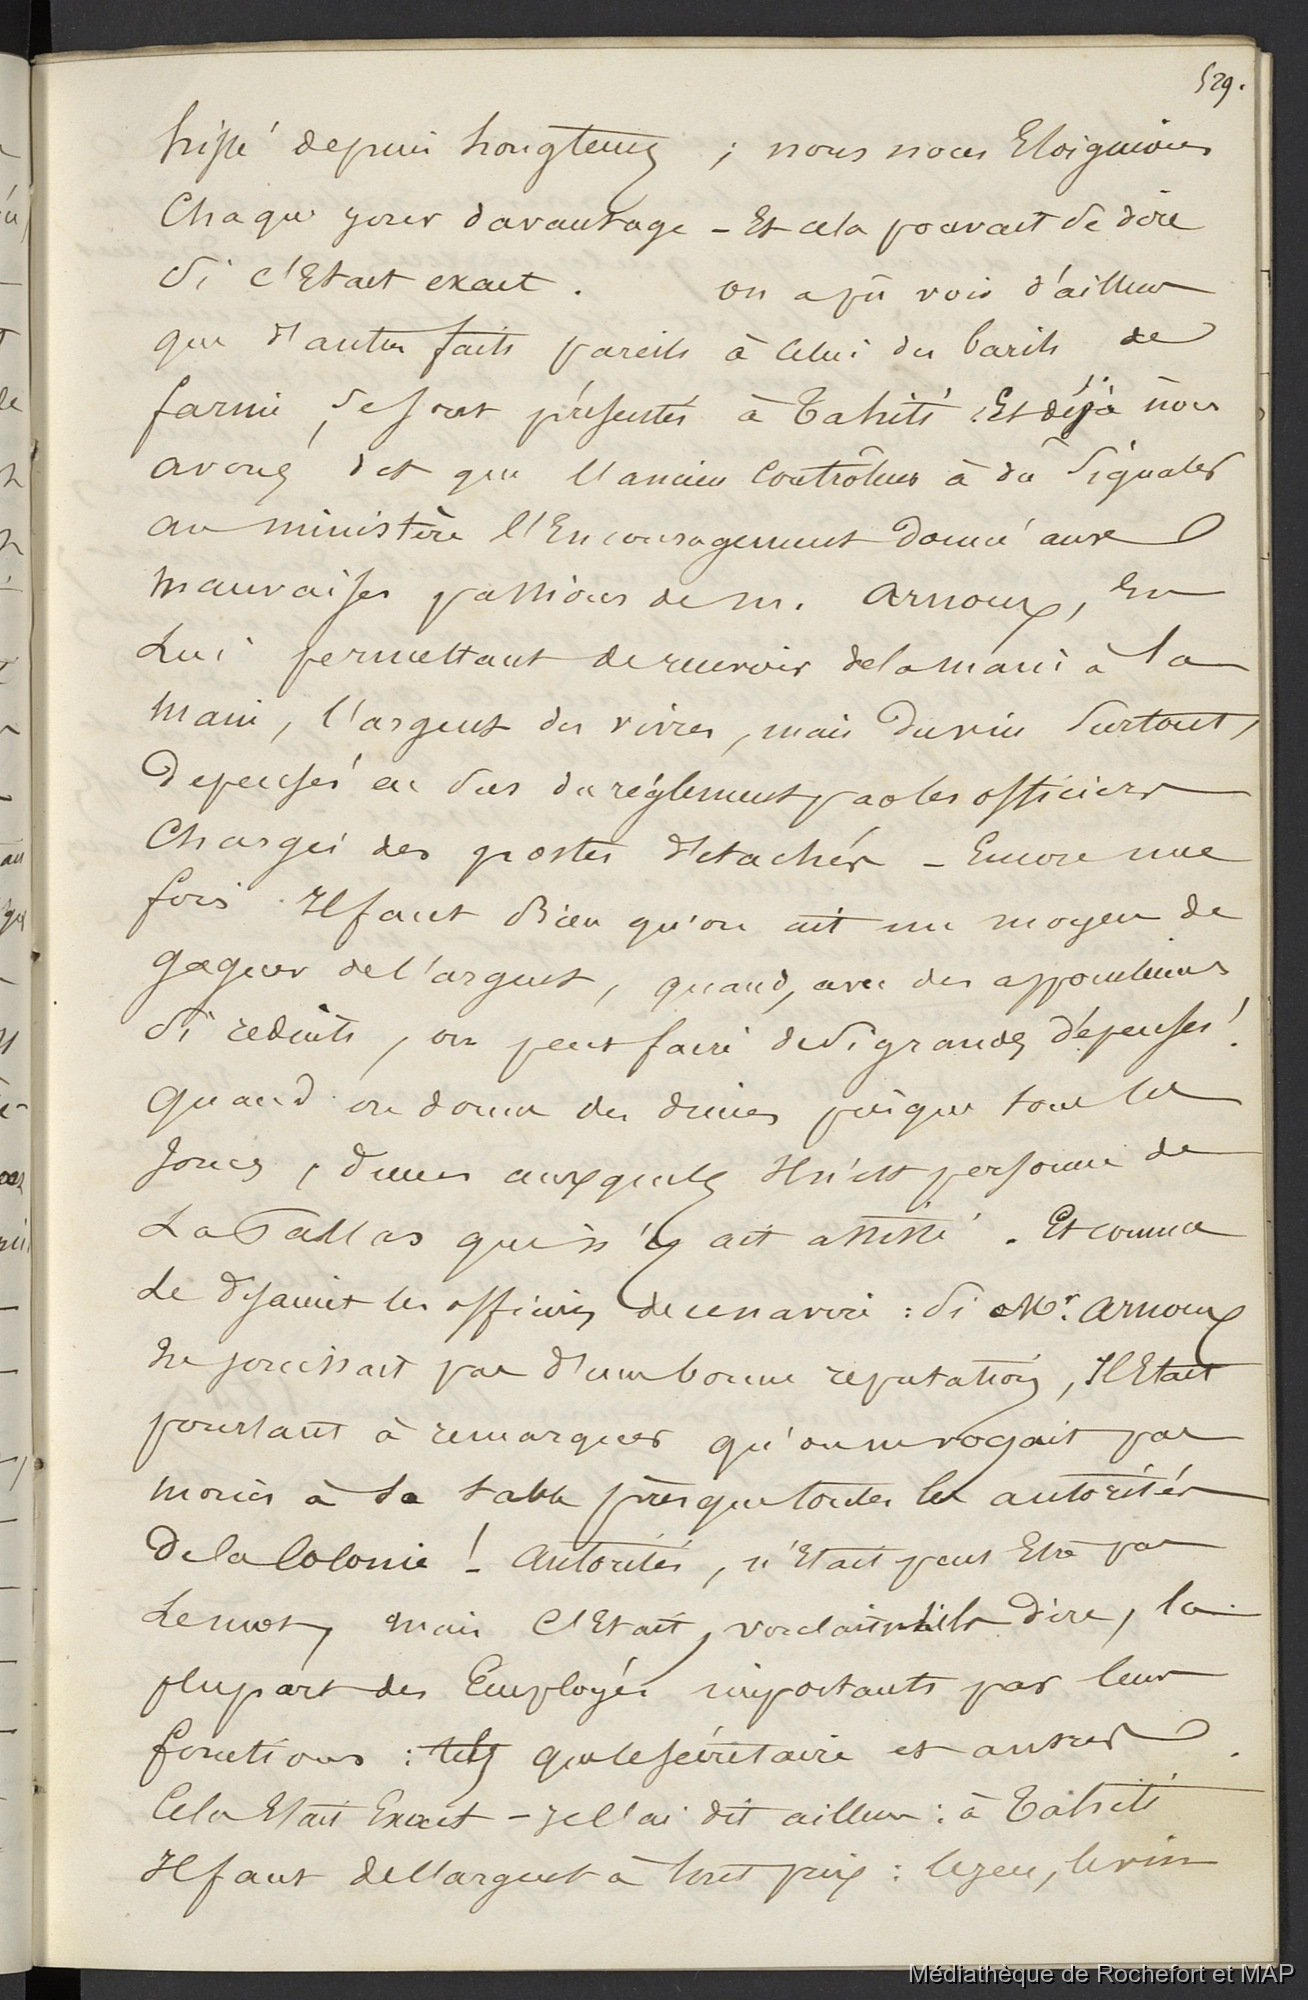 529.
hissé depuis longtems ; nous nous Eloignions
Chaque jour davantage - Et cela pouvait se dire
Si c'Etait exact . on a pû voir d'ailleurs
que d'autres faits pareils à celui des barils de
farine, se sont présentés à Tahiti . Et déjà nous
avons dit que l'ancien Contrôleur à dû Signaler
au ministère l'Encouragement donné aux
mauvaises passions de m. Arnoux, En
Lui permettant de recevoir de la main à la
main, l'argent des vivres, mais du vin Surtout,
Depensés en Sus du réglement par les officiers
Chargés des postes détachés - Encore une
fois Il faut Bien qu'on ait un moyen de
gagner de l'argent, quand, avec des appointemens
Si reduits, on peut faire de Si grandes dépenses !
quand on donne des diners presque tous les
Jours, diners auxquels Il n'est personne de
La Pallas qui n'y ait assisté . Et comme
Le disaient les officiers de ce navire : Si Mr. Arnoux
ne jouissait pas d'une bonne reputation, Il Etait
pourtant à remarquer qu'on ne voyait pas
moins à Sa table presque toutes les autorités
De la Colonie ! - Autorités, n'Etait peut Etre pas
Le mot, mais C'Etait, voulaient-ils dire, la
plupart des Employés importants par leurs
fonctions : tels que le Secrétaire et autres .
Cela Etait Exact - je l'ai dit ailleurs : à Tahiti
Il faut de l'argent à tout prix : le jeu, le vin
Médiathèque de Rochefort et MAP